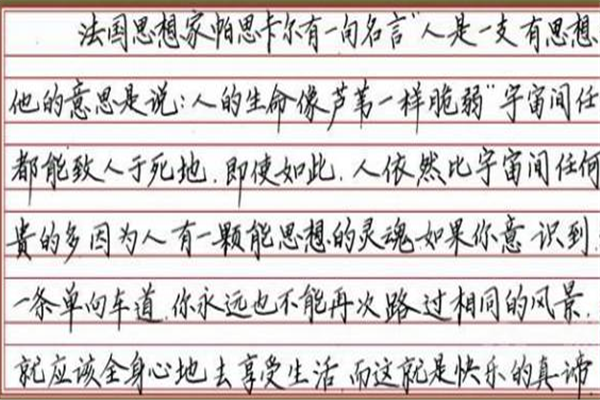 法国思想家帕思卡尔有一句名言“人是一支有思想
他的意思是说:人的生命像芦苇一样脆弱”宇宙间任
都能致人于死地.即使如此.人依然比宇宙间任何
贵的多因为人有一颗能思想的灵魂.如果你意识到
一条单向车道.你永远也不能再次路过相同的风景.
就应该全身心地去享受生活.而这就是快乐的真谛